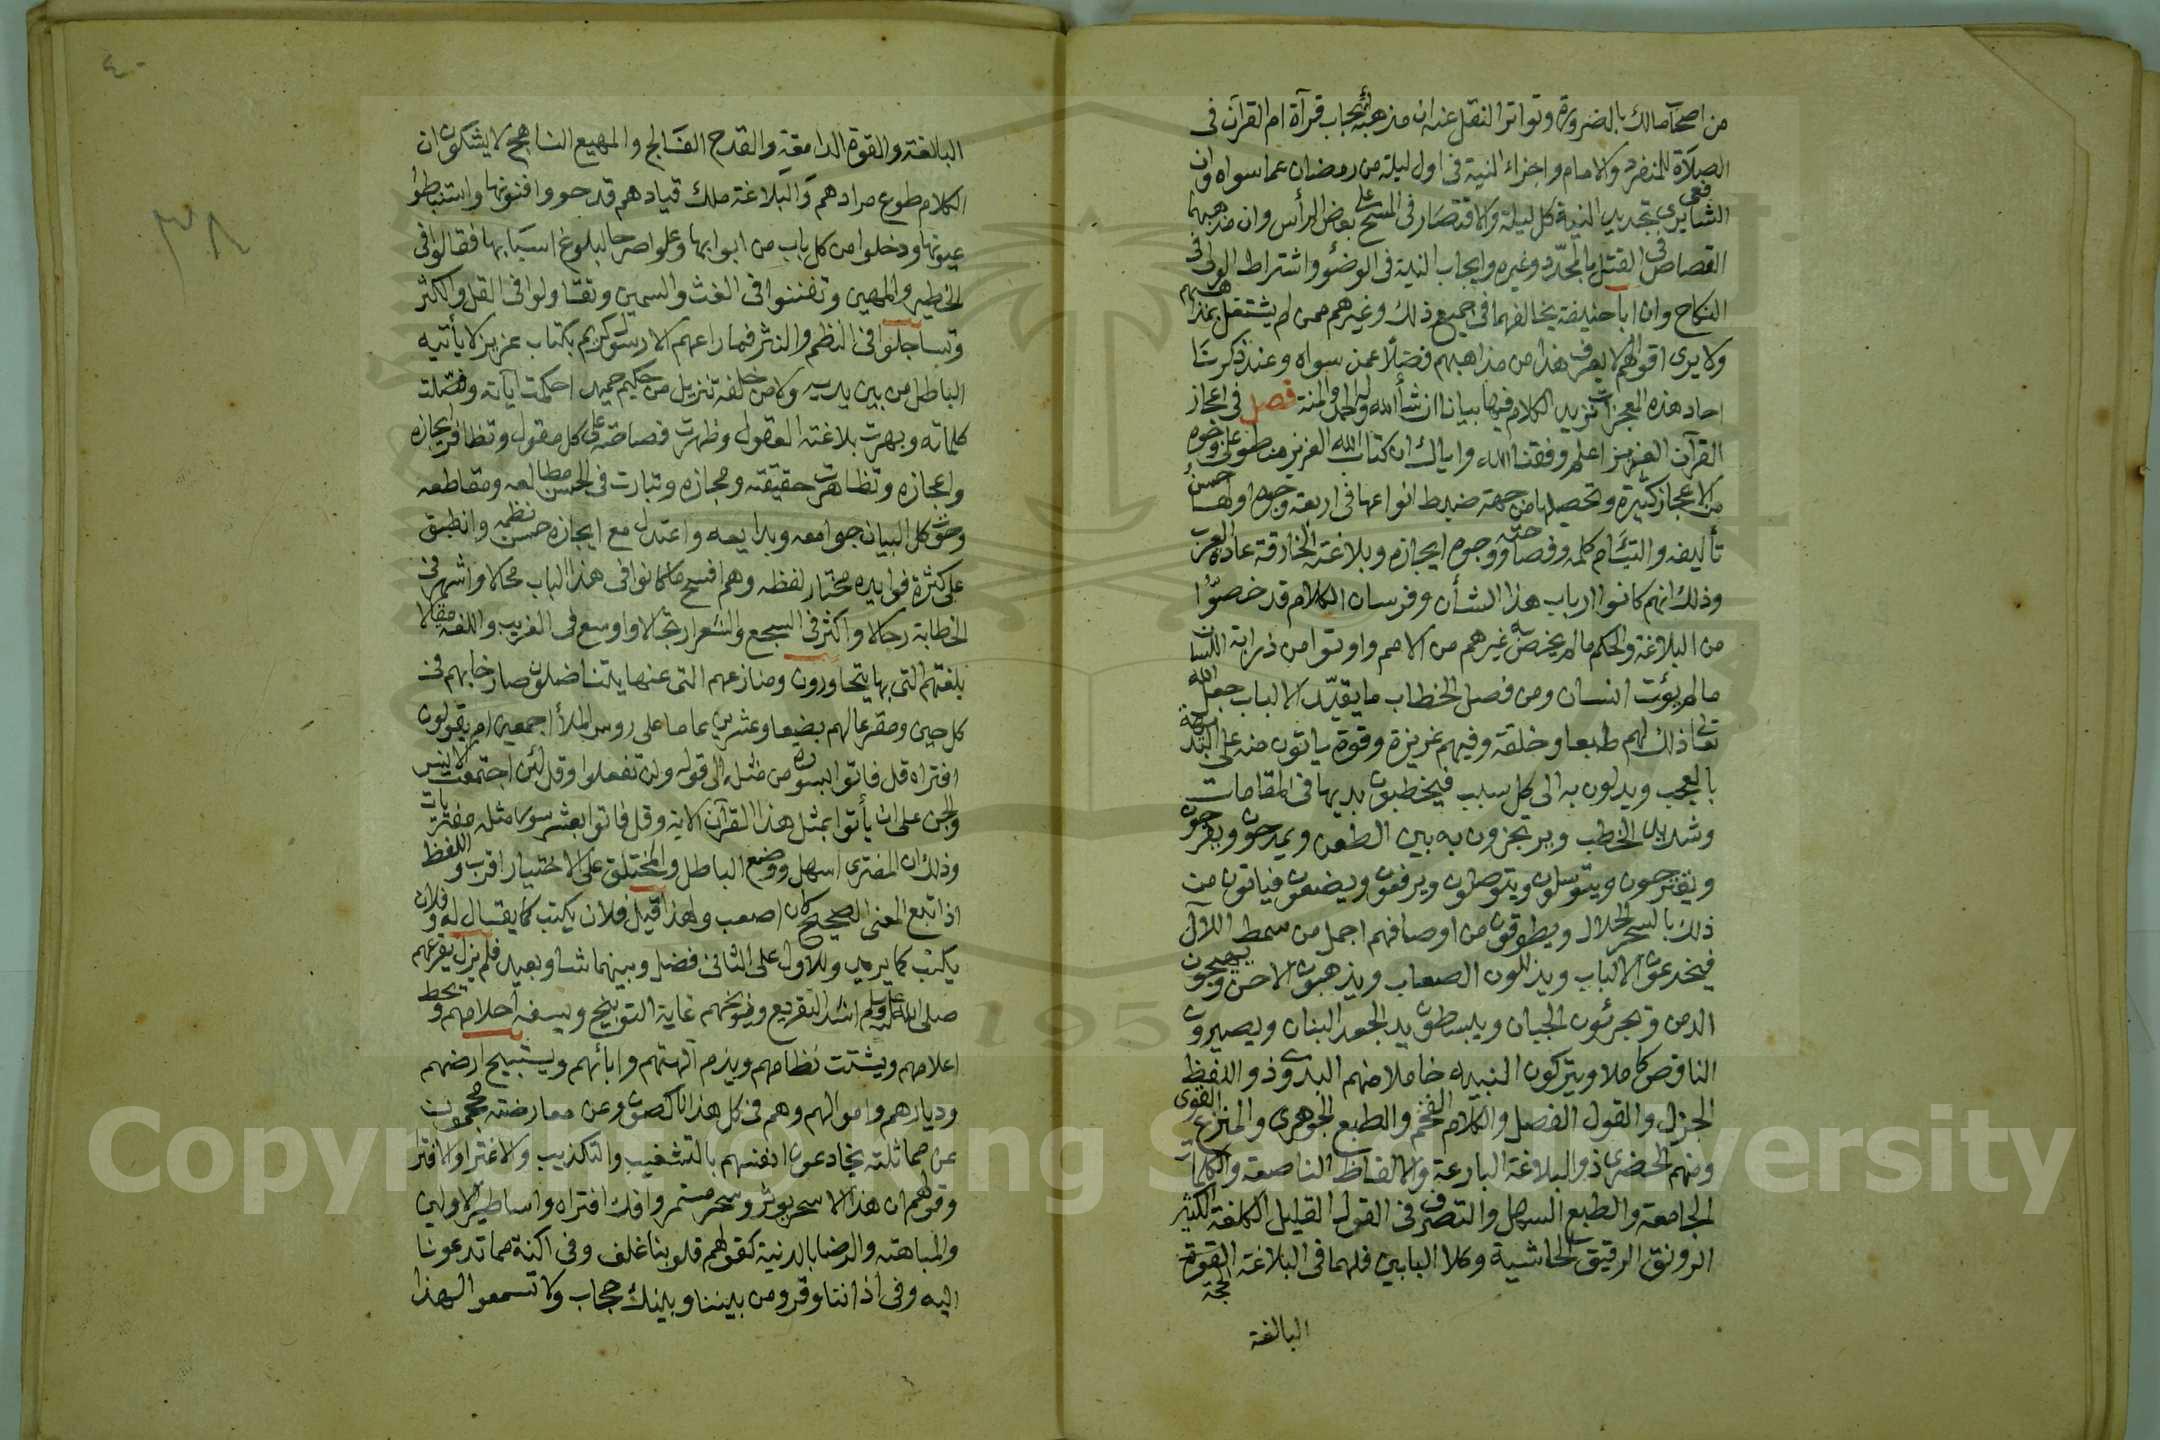 من اصحاب مالك بالضرورة وتواتر النقل عنه ان مذهبه ايجاب قرآة ام القرآن فى
الصلاة للمنفرد والامام واجزاء النية فى اول ليلة من رمضان عما سواه وان
الشافعى يرى تجديد النية كل ليلة والاقتصار فى المسح على بعض الرأس وان مذهبهما
القصاص فى القتل بالمحدد وغيره وايجاب النية فى الوضؤ واشتراط الولى فى
النكاح وان ابا حنيفة يخالفهما فى جميع ذلك وغيرهم ممن لم يشتغل بمذاهبهم
ولا يرى اقوالهم لا يعرف هذا من مذاهبهم فضلا عمن سواه وعند ذكرنا
احاد هذه المعجزات نزيد الكلام فيها بيانا ان شأ الله وله الحمد والمنة فصل فى اعجاز
القرآن العزيز اعلم وفقنا الله واياك ان كتاب الله العزيز منطو على وجوه
من الاعجاز كثيرة وتحصيلها من جهة ضبط انواعها فى اربعة وجوه اولها حسن
تأليفه والتئام كلمه وفصاحته ووجوه ايجازه وبلاغته الخارقة عادة العرب
وذلك انهم كانوا ارباب هذا الشأن وفرسان الكلام قد خصوا
من البلاغة والحكم ما لم يخص به غيرهم من الامم واوتوا من ذرابة اللسان
ما لم يؤت انسان ومن فصل الخطاب ما يقيد الالباب جعل الله
تعالى ذلك لهم طبعا وخلقة وفيهم غريزة وقوة ياتون منه على البديهة
بالعجب ويدلون به الى كل سبب فيخطبون بديها فى المقامات
وشديد الخطب ويرتجزون به بين الطعن ويمدحون ويقدحون
ويتوسلون ويتوصلون ويرفعون ويضعون فياتون من
ذلك بالسحر الحلال ويطوقون من اوصافهم اجمل من سمط اللآل
فيخدعون الالباب ويذللون الصعاب ويذهبون الاحن ويهيجون
الدمن ويجرئون الجبان ويبسطون يد الجعد البنان ويصيرون
الناقص كاملا ويتركون النبيه خاملا منهم البدوى ذو اللفظ
الجزل والقول الفصل والكلام الفخم والطبع الجوهرى والمنزع القوى
ومنهم الحضرى ذو البلاغة البارعة والالفاظ الناصعة والكلمات
الجامعة والطبع السهل والتصرف فى القول القليل الكلفة الكثير
الرونق الرقيق الحاشية وكلا البابين فلهما فى البلاغة القوة
الحجة
البالغة
٤٠
٣٨
البالغة والقوة الدامغة والقدح الفالج والمهيع الناهج لا يشكون ان
الكلام طوع مرادهم والبلاغة ملك قيادهم قد حووا فنونها واستنبطوا
عيونها ودخلوا من كل باب من ابوابها وعلوا صرحا لبلوغ اسبابها فقالوا فى
الخطير والمهين وتفننوا فى الغث والسمين وتقاولوا فى القل والكثر
وتساجلوا فى النظم والنثر فما راعهم الا رسول كريم بكتاب عزيز لا يأتيه
الباطل من بين يديه ولا من خلفه تنزيل من حكيم حميد احكمت آياته وفصلت
كلماته وبهرت بلاغته العقول وظهرت فصاحته على كل مقول وتظافر ايجازه
واعجازه وتظاهرت حقيقته ومجازه وتبارت فى الحسن مطالعه ومقاطعه
وحوت كل البيان جوامعه وبدايعه واعتدل مع ايجازه حسن نظمه وانطبق
على كثرة فوايده مختار لفظه وهم افسح ما كانوا فى هذا الباب مجالا واشهر فى
الخطابة رجالا واكثر فى السجع والشعر ارتجالا واوسع فى الغريب واللغة مقالا
بلغتهم التى بها يتحاورون ومنازعهم التى عنها يتناضلون صارخا بهم فى
كل حين ومقرعا لهم بضعا وعشرين عاما على روس الملأ اجمعين ام يقولون
افتراه قل فاتوا بسورة من مثله الى قوله ولن تفعلوا وقل لئن اجتمعت الانس
والجن على ان يأتوا بمثل هذا القرآن الاية وقل فاتوا بعشر سور مثله مفتريات
وذلك ان المفترى اسهل ووضع الباطل والمختلق على الاختيار اقرب واللفظ
اذا تبع المعنى الصحيح كان اصعب ولهذا قيل فلان يكتب كما يقال له وفلان
يكتب كما يريد وللاول على الثانى فضل وبينهما شاو بعيد فلم يزل يقرعهم
صلى الله عليه وسلم اشد التقريع ويوبخهم غاية التوبيخ ويسفه احلامهم ويحط
اعلامهم ويشتت نظامهم ويذم آلهتهم وابائهم ويستبيح ارضهم
وديارهم واموالهم وهم فى كل هذا ناكصون وعن معارضته محجمون
عن مماثلته يخادعون انفسهم بالتشغيب والتكذيب والاغترا والافترا
وقولهم ان هذا الا سحر يوثر وسحر مستمر وافك افتراه واساطير الاولين
والمباهتة والرضا بالدنية كقولهم قلوبنا غلف وفى اكنة مما تدعونا
اليه وفى اذاننا وقر ومن بيننا وبينك حجاب ولا تسمعوا لهذا
Copyright © King Saud University
195